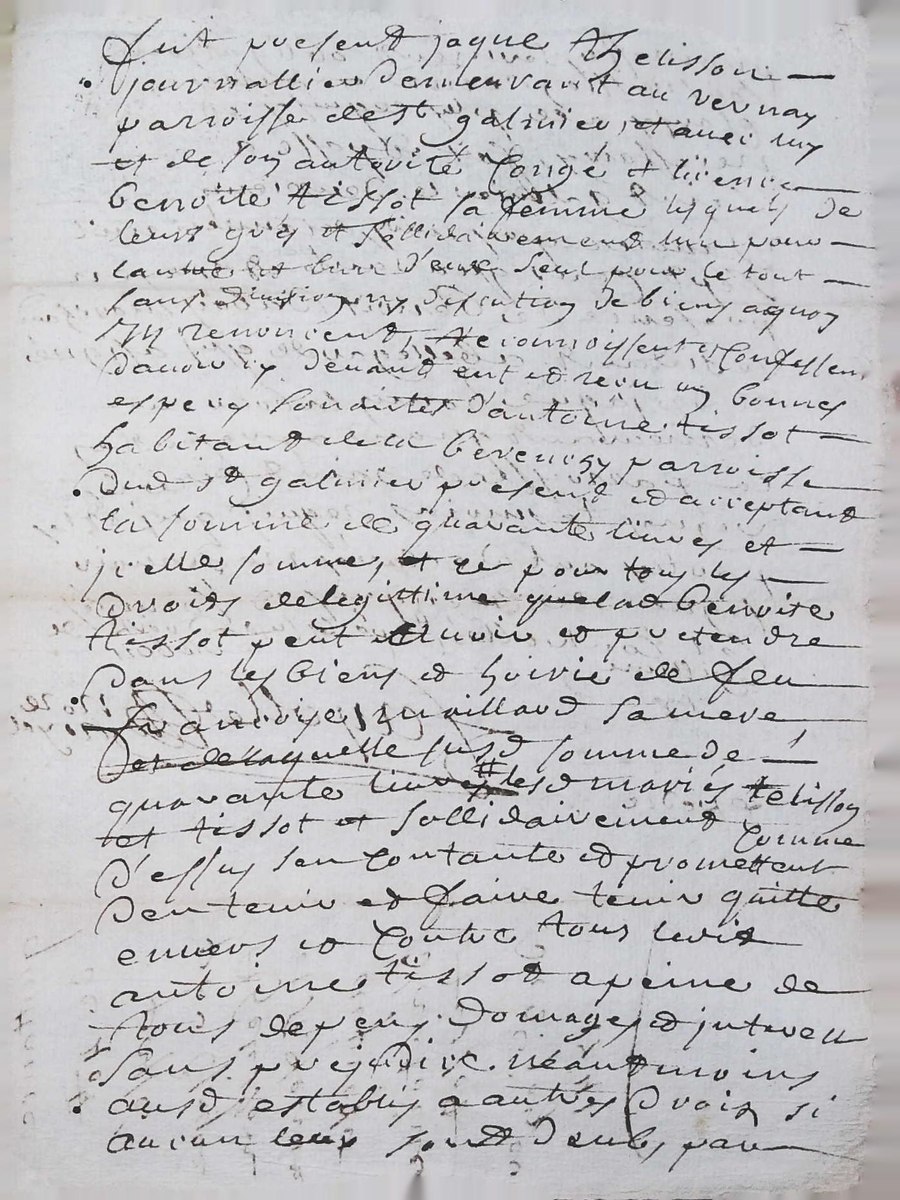 fut present jaque thelisson
journallier demeurant au vernay
parroisse de st galmier, et avec luy
et de son autorité congé et licence
benoite tissot sa femme lesquels de
leurs grés et sollidairement l'un pour
l'autre et l'un d'eux seul pour le tout
sans division ny discution de biens a quoy
ils renoncent, reconnoissent et confessent
d'avoir cy devant eut et receu en bonnes
especes d'antoine tissot
habitant de la parroisse
dud st galmier present et acceptant
la somme de quarante livres et
jcelle somme, et ce pour tous les
droits de legittime que lad benoite
tissot peut avoir et pretendre
dans les biens et hoirie de feu
francoise maillard sa mere
et de laquelle susd somme de
quarante livres lesd mariés telisson
et tissot et sollidairement comme
d'essus s'en contante et promettent
d'en tenir et faire tenir quitte
envers et contre tous ledit
antoine tissot a peine de
tous depens domages et jnterest
sans prejudice neantmoins
ausd establis a autres droits si
aucun leur sont deubs, par